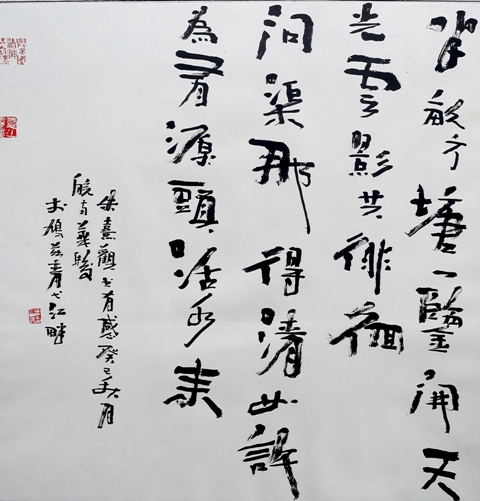 半畝方塘一鑒開天
光雲影共徘徊
問渠那得清如許
為有源頭活水來
朱熹觀書有感癸巳秋月
於鳩茲青弋江畔